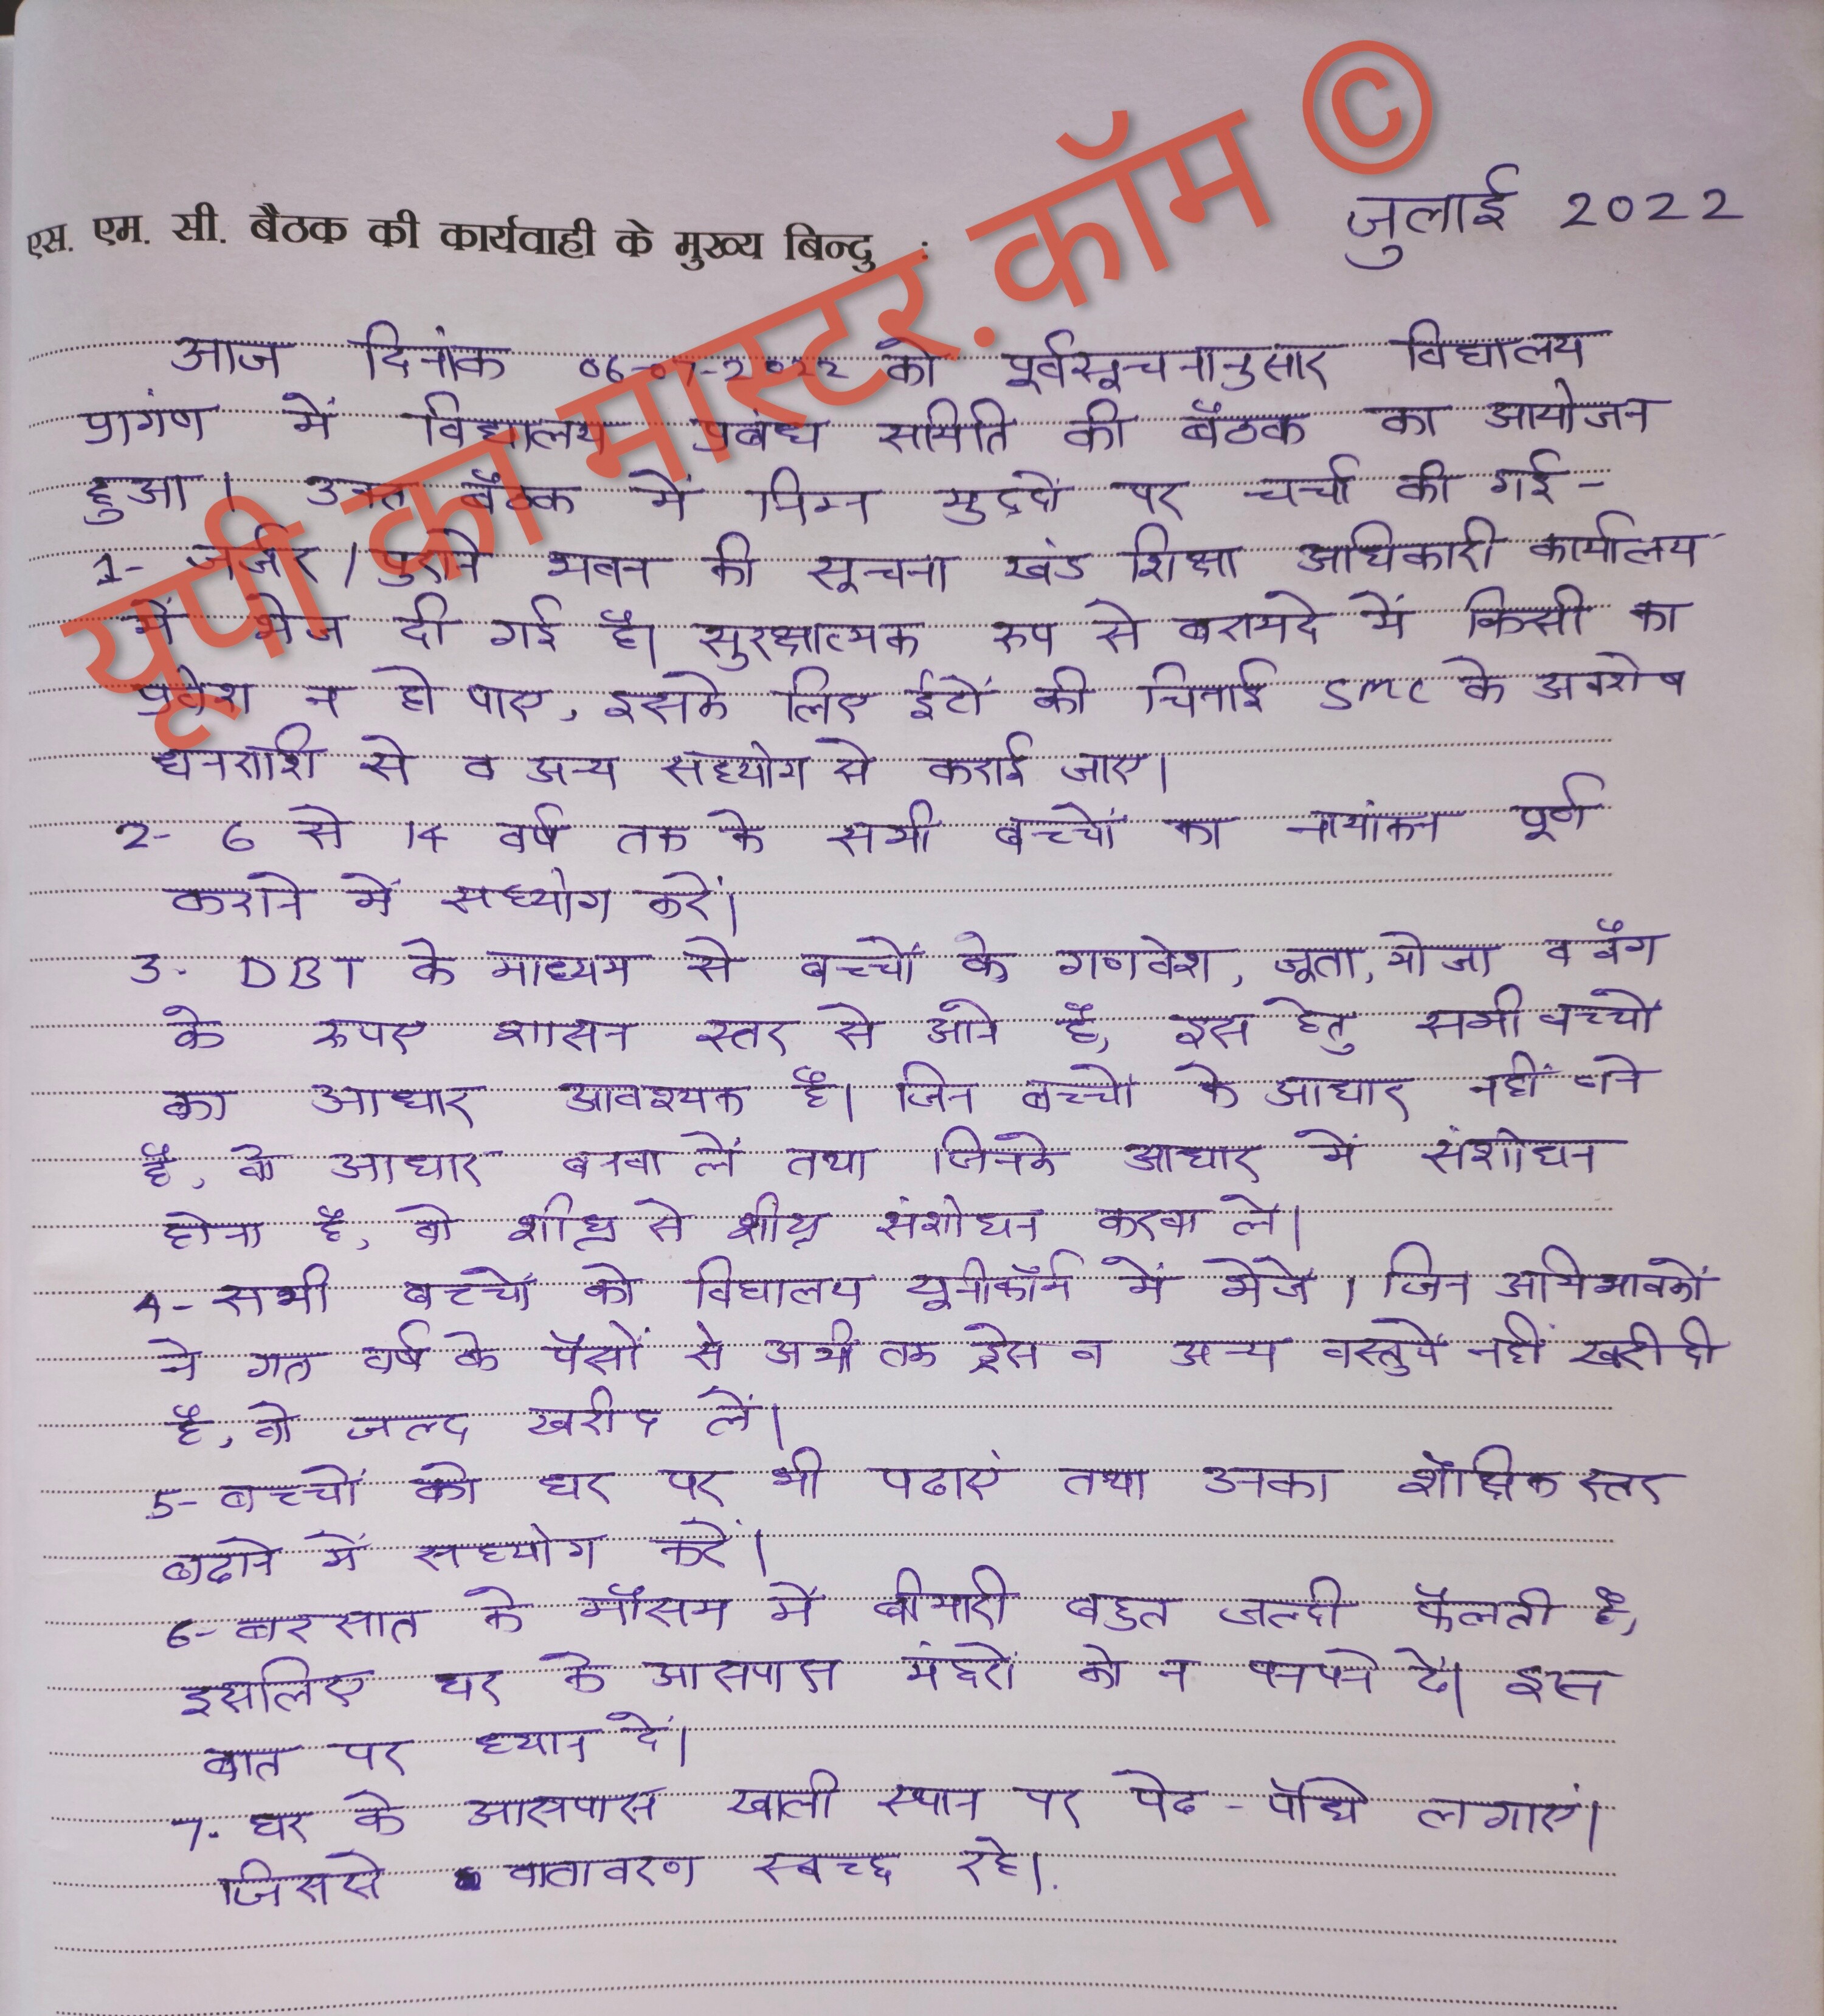 यूपी का मास्टर.कॉम ©
जुलाई 2022
एस. एम. सी. बैठक की कार्यवाही के मुख्य बिन्दु :
आज दिनांक 06-07-2022 को पूर्वसूचनानुसार विद्यालय
प्रागंण में विद्यालय प्रबंध समिति की बैठक का आयोजन
हुआ। उक्त बैठक में निम्न मुद्दों पर चर्चा की गई -
1- जर्जर / पुराने भवन की सूचना खंड शिक्षा अधिकारी कार्यालय
में भेज दी गई है। सुरक्षात्मक रूप से बरामदे में किसी का
प्रवेश न हो पाए, इसके लिए ईंटों की चिनाई SMC के अवशेष
धनराशि से व अन्य सहयोग से कराई जाए।
2- 6 से 14 वर्ष तक के सभी बच्चों का नामांकन पूर्ण
कराने में सहयोग करें।
3- DBT के माध्यम से बच्चों के गणवेश, जूता, मोजा व बैग
के रुपए शासन स्तर से आने है, इस हेतु सभी बच्चों
का आधार आवश्यक है। जिन बच्चों के आधार नहीं बने
है, वो आधार बनवा लें तथा जिनके आधार में संशोधन
होना है, वो शीघ्र से शीघ्र संशोधन करवा ले।
4- सभी बच्चों को विद्यालय यूनीफॉर्म में भेंजे। जिन अभिभावकों
ने गत वर्ष के पैसों से अभी तक ड्रेस व अन्य वस्तुयें नहीं खरीदी
है, वो जल्द खरीद लें।
5- बच्चों को घर पर भी पढाएं तथा उनका शैक्षिक स्तर
बढाने में सहयोग करें।
6- बरसात के मौसम में बीमारी बहुत जल्दी फैलती है,
इसलिए घर के आसपास मंछरों को न पनपने दें। इस
बात पर ध्यान दें।
7- घर के आसपास खाली स्थान पर पेढ - पौधे लगाएं।
जिससे वातावरण स्वच्छ रहे।